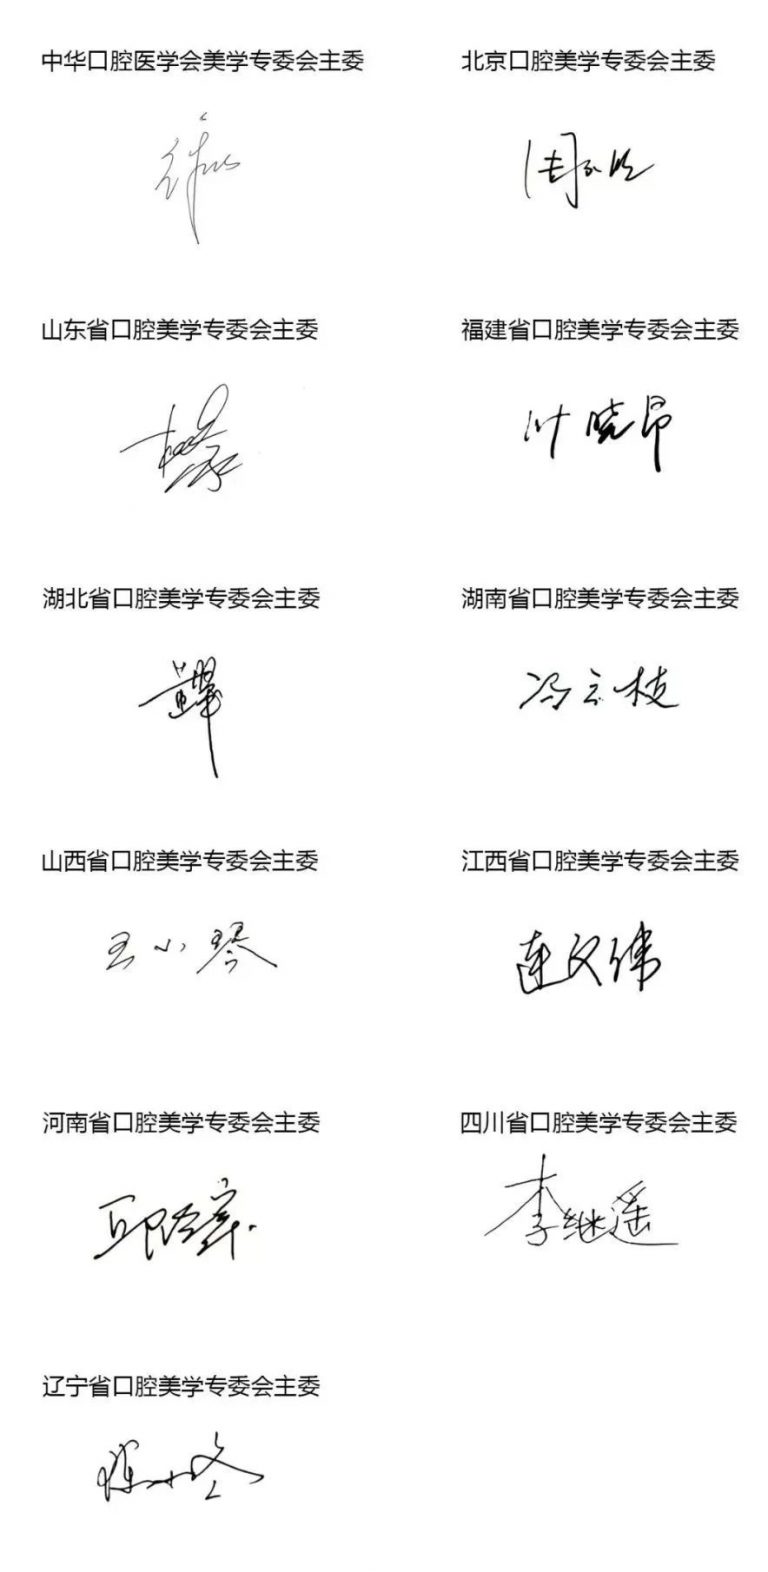 中华口腔医学会美学专委会主委
北京口腔美学专委会主委
山东省口腔美学专委会主委
福建省口腔美学专委会主委
叶晓昂
湖北省口腔美学专委会主委
湖南省口腔美学专委会主委
冯云枝
山西省口腔美学专委会主委
王小琴
江西省口腔美学专委会主委
连文伟
河南省口腔美学专委会主委
四川省口腔美学专委会主委
李继遥
辽宁省口腔美学专委会主委